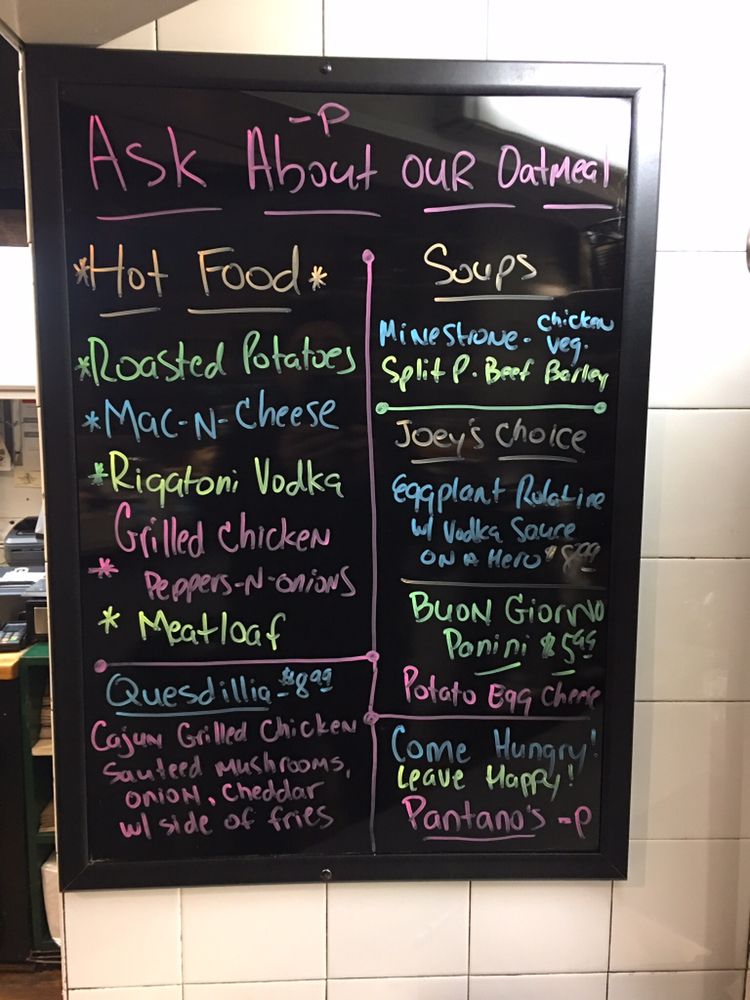 -P
Ask About our Oatmeal
*Hot Food*
*Roasted Potatoes
*Mac-N-Cheese
*Rigatoni Vodka
Grilled Chicken
* Peppers-N-onions
* Meatloaf
Quesdillia $8.99
Cajun Grilled Chicken
Sauteed mushrooms,
onion, cheddar
w/ side of fries
Soups
Minestrone - Chicken veg.
Split P. Beef Barley
Joey's Choice
Eggplant Rolatine
w/ Vodka Sauce
on a Hero $8.99
Buon Giorno
Panini $5.99
Potato Egg Cheese
Come Hungry!
Leave Happy!
Pantano's -P